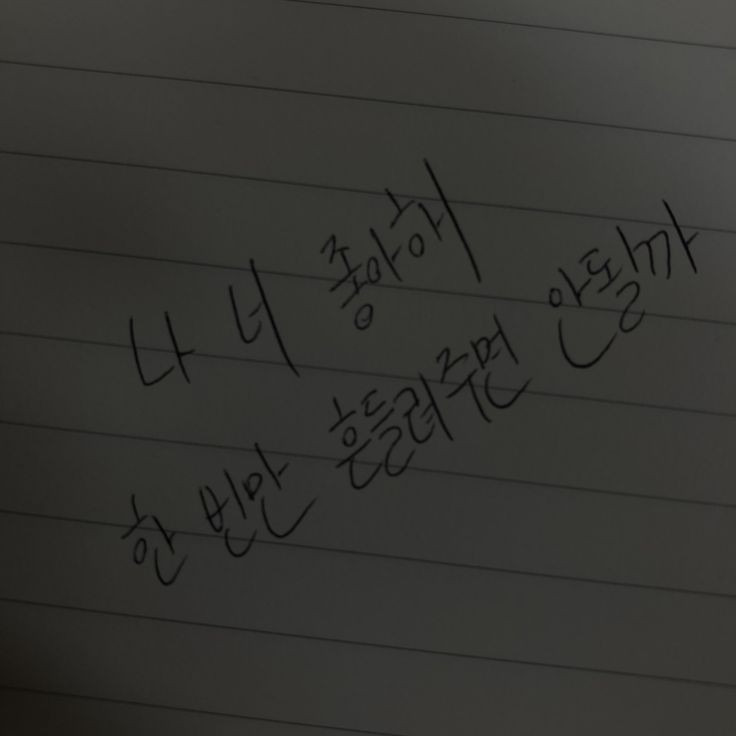 나 너 좋아해
한 번만 흔들려주면 안될까